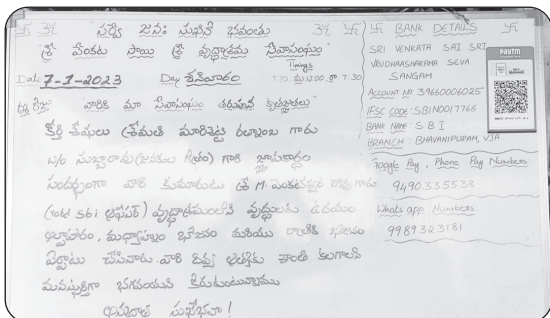 "సర్వే జనాః సుఖినో భవంతు"
"శ్రీ వేంకట సాయి శ్రీ వృద్ధాశ్రమ సేవాసంఘం"
Timings
Date 7-1-2023 Day శనివారం 7.30, మ.12.00, రా 7.30
ఈ రోజు వారికి మా సేవాసంఘం తరుపున కృతజ్ఞతలు"
కీర్తి శేషులు శ్రీమతి మారిశెట్టి రత్నాంబ గారు
W/o సుబ్బారావు గారి జ్ఞాపకార్థం
సందర్భంగా వారి కుమారుడు శ్రీ M. వెంకటేశ్వర రావు గారు
(retd SBI ఆఫీసర్) వృద్ధాశ్రమంలోని వృద్ధులకు ఉదయం
అల్పాహారం, మధ్యాహ్నం భోజనం మరియు రాత్రికి భోజనం
ఏర్పాటు చేసినారు. వారి దివ్య ఆత్మకు శాంతి కలగాలని
మనస్ఫూర్తిగా భగవంతుని కోరుకుంటున్నాము
అన్నదాత సుఖీభవా!
BANK DETAILS
SRI VENKATA SAI SRI
VRUDHAASHRAMA SEVA
SANGAM
ACCOUNT NO: 39660006025
IFSC CODE: SBIN0017766
BANK NAME SBI
BRANCH: BHAVANIPURAM, VJA
Google Pay, Phone Pay Numbers
9490335538
Whats app Numbers
9989323181
paytm